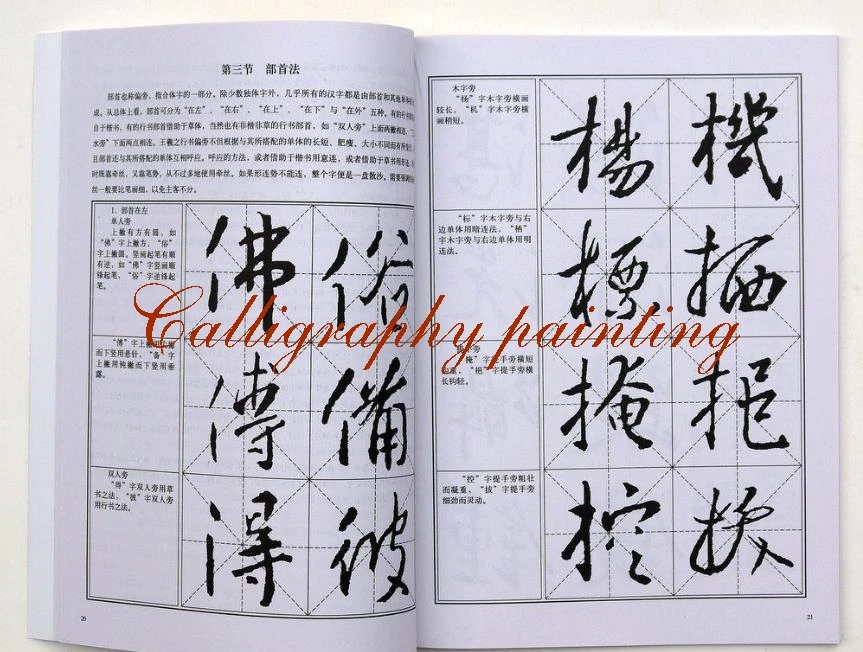 第三节 部首法
部首也称偏旁，指合体字的一部分。除少数独体字外，几乎所有的汉字都是由部首和其他单体
成。从总体上看，部首可分为“在左”、“在右”、“在上”、“在下”与“在外”五种。有的行
自于楷书，有的行书部首借助于草体，当然也有非楷非草的行书部首，如“双人旁”上面两撇相连，
水旁”下面两点相连。王羲之行书偏旁不但根据与其所搭配的单体的长短、肥瘦、大小不同而有所
且部首还与其所搭配的单体互相呼应。呼应的方法，或者借助于楷书用意连，或者借助于草书用形连，
时既靠牵丝，又靠笔势，从不过多地使用牵丝。如果形连势不能连，整个字便是一盘散沙。需要
丝一般要比笔画细，以免主客不分。
1. 部首在左
单人旁
上撇有方有圆，如
“佛”字上撇方，“俗”
字上撇圆。竖画起笔有顺
有逆，如“佛”字竖画顺
锋起笔，“俗”字逆锋起
笔。
佛 俗
“傅”字上撇
而下竖用悬针，“备”字
上撇用钝撇而下竖用垂
露。
傅 備
双人旁
“得”字双人旁用草
书之法，“彼”字双人旁
用行书之法。
得 彼
20
木字旁
“杨”字木字旁横画
较长，“机”字木字旁横
画稍短。
楊 機
“标”字木字旁与右
边单体用暗连法，“栖”
字木字旁与右边单体用明
连法。
標 栖
“掩”字提手旁横短
重，“挹”字提手旁横
长钩轻。
掩 挹
“控”字提手旁粗壮
而凝重，“拔”字提手旁
细劲而灵动。
控 拔
21
Calligraphy painting